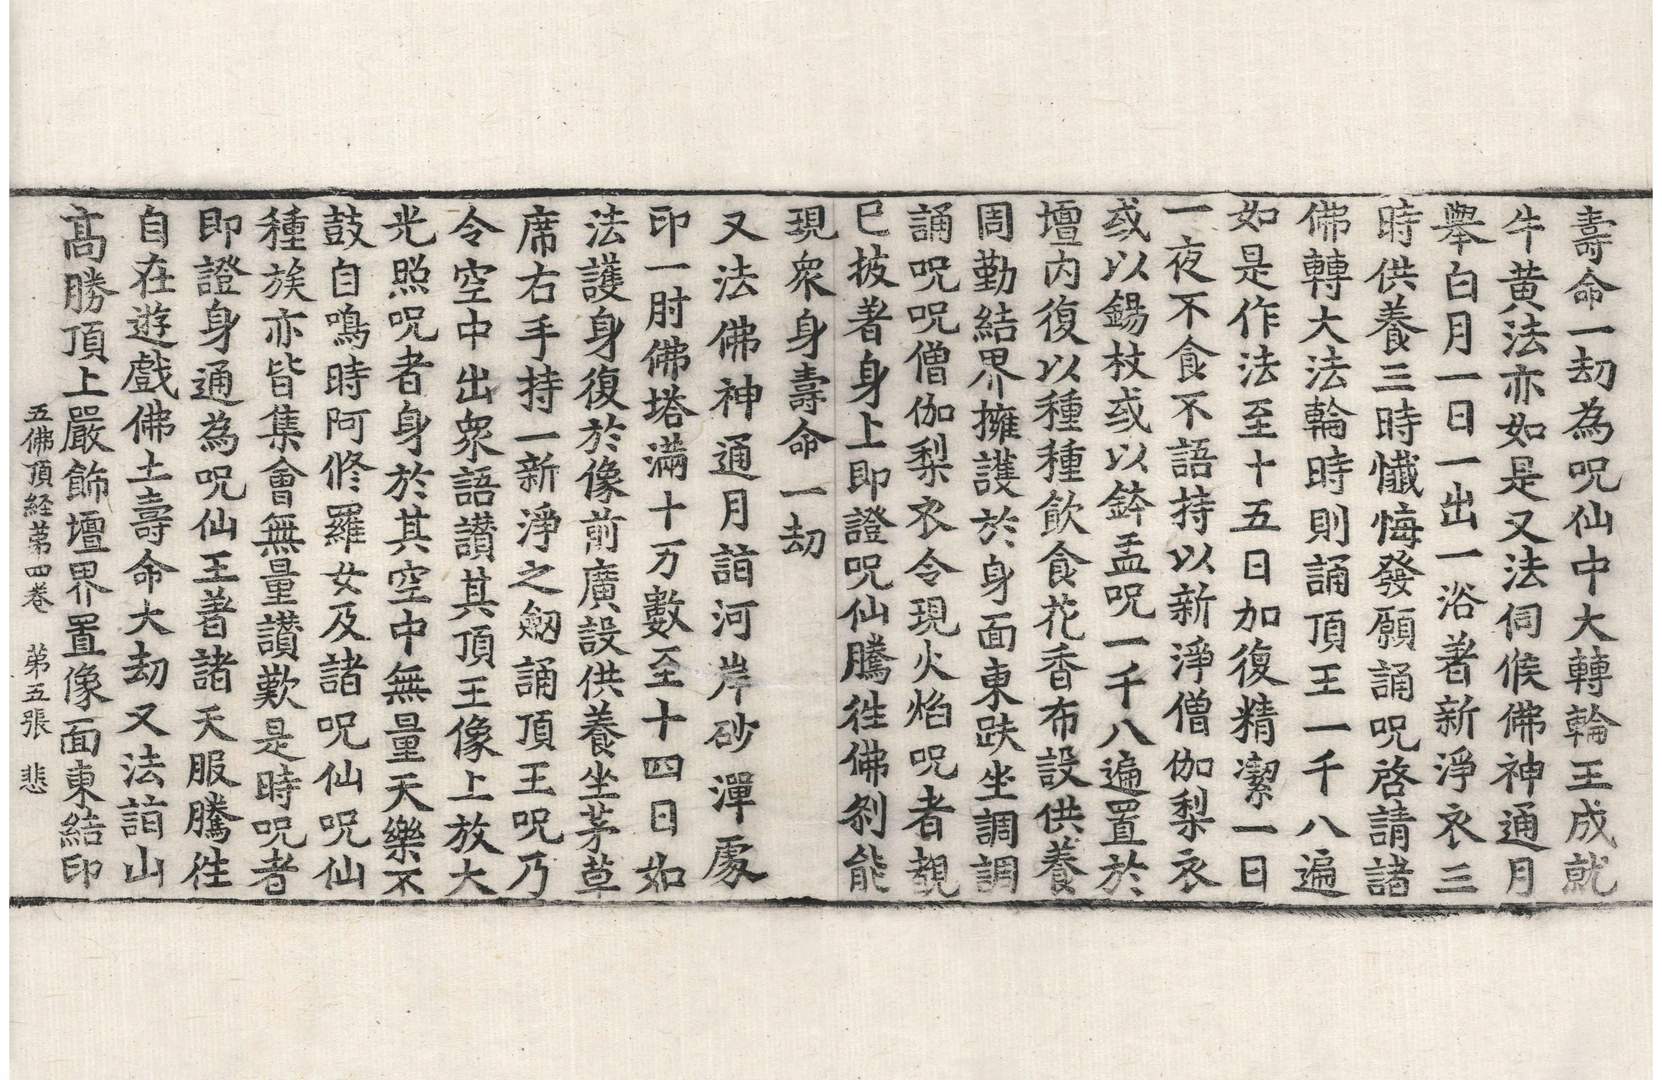 壽命一劫為呪仙中大轉輪王成就
牛黃法亦如是又法伺候佛神通月
舉白月一日一出一浴著新淨衣三
時供養三時懺悔發願誦呪啓請諸
佛轉大法輪時則誦頂王一千八遍
如是作法至十五日加復精潔一日
一夜不食不語持以新淨僧伽梨衣
或以錫杖或以鉢盂呪一千八遍置於
壇內復以種種飮食花香布設供養
周勤結界擁護於身面東趺坐調調
誦呪呪僧伽梨衣令現火焰呪者覩
已披著身上即證呪仙騰往佛剎能
現衆身壽命一劫
又法佛神通月詣河岸砂潬處
印一肘佛塔滿十万數至十四日如
法護身復於像前廣設供養坐茅草
席右手持一新淨之劒誦頂王呪乃
令空中出衆語讃其頂王像上放大
光照呪者身於其空中無量天樂不
鼓自鳴時阿修羅女及諸呪仙呪仙
種族亦皆集會無量讃歎是時呪者
即證身通為呪仙王著諸天服騰往
自在遊戲佛土壽命大劫又法詣山
髙勝頂上嚴飾壇界置像面東結印
五佛頂経苐四卷　苐五張　悲